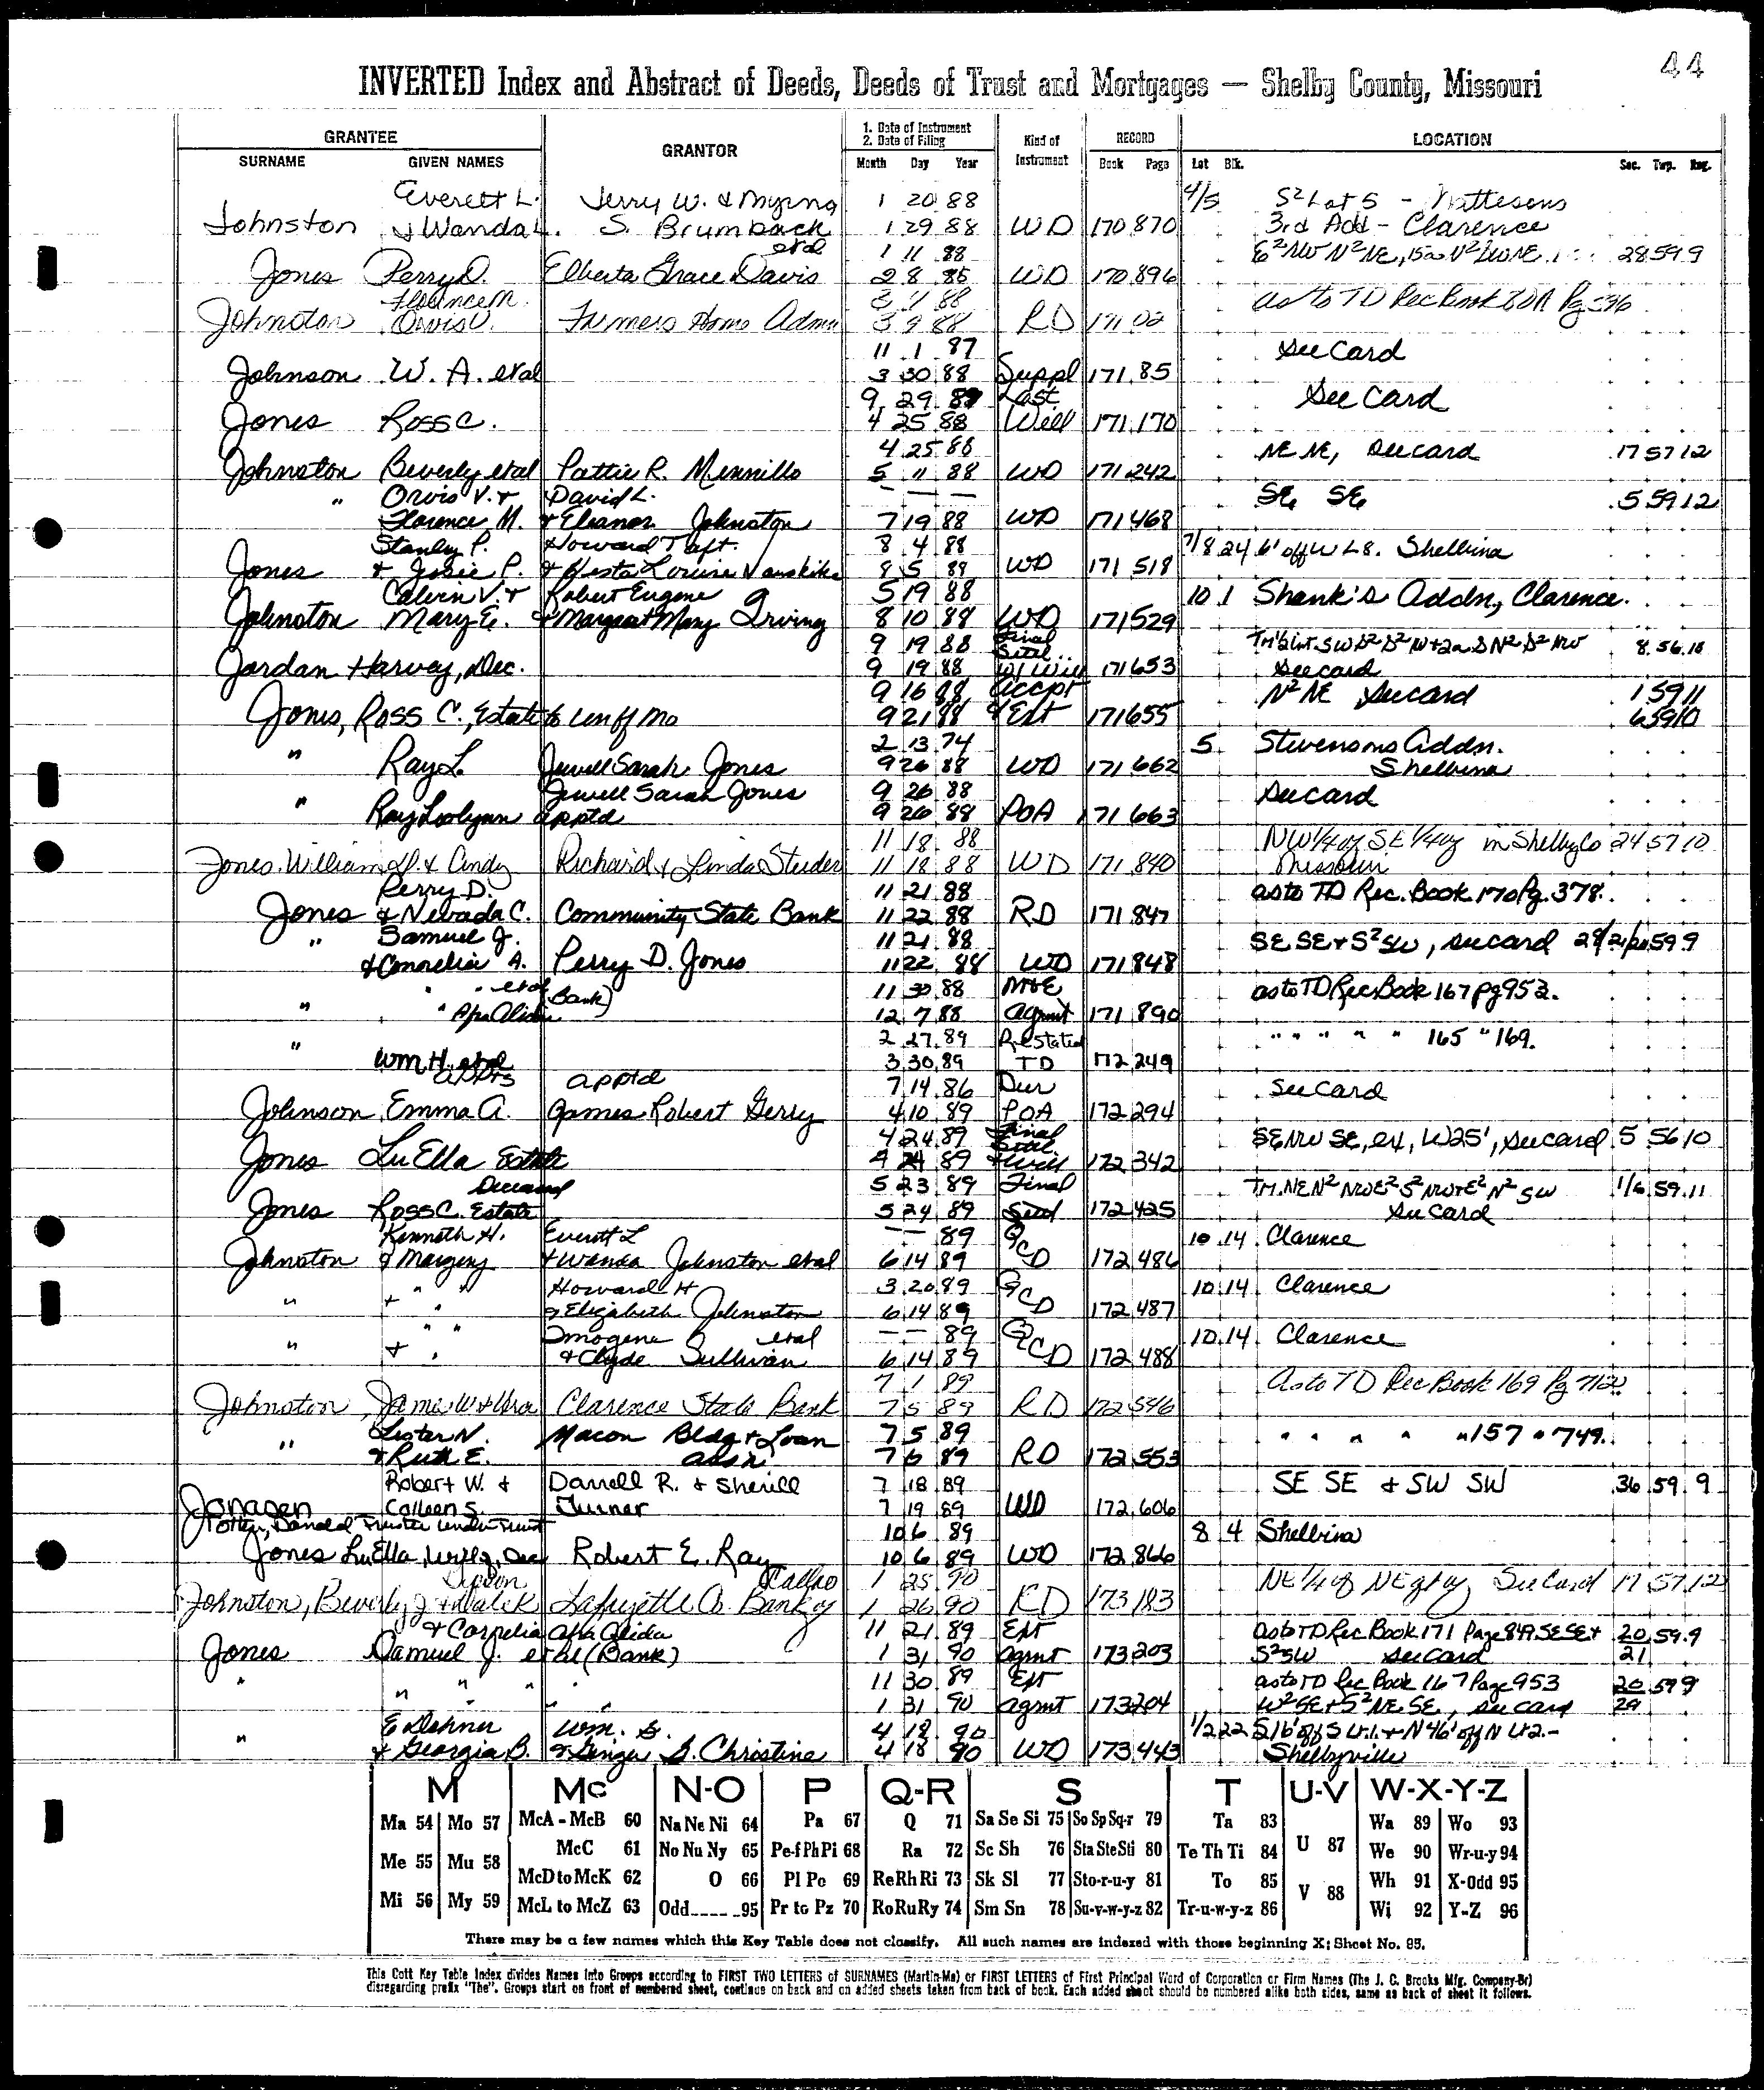 44
INVERTED Index and Abstract of Deeds, Deeds of Trust and Mortgages — Shelby County, Missouri
GRANTEE GRANTOR 1. Date of Instrument 2. Date of Filing Kind of Instrument RECORD LOCATION
SURNAME GIVEN NAMES Month Day Year Book Page Lot Blk. Sec. Twp. Rng.
Everett L. Jerry W. & Myrna 1 20 88 4/5 S² Lot 5 -
Johnston & Wanda L. S. Brumback 1 29 88 WD 170 870 3rd Add - Clarence
etal 1 11 88 28 59 9
Jones Perry D. Elberta Grace Davis 2 8 88 WD 170 896
Florence M. 3 1 88 as to TD Rec Book
Johnston Orvis V. Farmers Home Admn 3 9 88 RD 171 02
11 1 87 See Card
Johnson W. A. etal 3 30 88 Suppl 171 85
9 29 Last See Card
Jones Ross C. 4 25 88 Will 171 170
4 25 88 NE NE, See card 17 57 12
Johnston Beverly etal Pattie R. Mennillo 5 11 88 WD 171 242
" Orvis V. & David L. — — — SE SE 5 59 12
Florence M. & Eleanor Johnston 7 19 88 WD 171 468
Stanley P. Howard Taft 8 4 88 7/8 24 6' off W L 8. Shelbina
Jones & Jessie P. & Hesta Louise Vanskike 8 5 88 WD 171 518
Calvin V. & Robert Eugene 5 19 88 10 1 Shank's Addn, Clarence.
Johnston Mary E. & Margaret Mary Irving 8 10 88 WD 171 529
9 19 88 Final Setl 8 56 10
Jordan Harvey, Dec. 9 19 88 W/ Will 171 653 See card
9 16 88 Accpt N² NE See card 1 59 11
Jones, Ross C., Estate to Un of Mo 9 21 88 & Ext 171 655 6 59 10
2 13 74 5 Stevensons Addn.
" Ray L. Jewell Sarah Jones 9 26 88 WD 171 662 Shelbina
Jewell Sarah Jones 9 26 88 See card
" Ray Loolynn apptd 9 26 88 POA 171 663
11 18 88 NW 1/4 of SE 1/4 of in Shelby Co 24 57 10
Jones, William D. & Cindy Richard & Linda Studer 11 18 88 WD 171 840 Missouri
Perry D. 11 21 88 as to TD Rec. Book 170 Pg. 378.
Jones & Nevada C. Community State Bank 11 22 88 RD 171 847
" Samuel J. 11 21 88 SE SE & S² SW, See card 59 9
& Cornelia A. Perry D. Jones 11 22 88 WD 171 848
" " etal (Bank) 11 30 88 as to TD Rec Book 167 Pg 953.
" " 12 7 88 Agrmt 171 890
" 2 27 89 Restated " " " " " 165 " 169.
Wm. H. etal 3 30 89 TD 172 249
appts apptd 7 14 86 Dur See Card
Johnson Emma A. James Robert Gerry 4 10 89 POA 172 294
4 24 89 Final Setl SE NW SE, ex, W 25', See card 5 56 10
Jones LuElla Estate 4 24 89 & Will 172 342
Deceased 5 23 89 Final 1/6 59 11
Jones Ross C. Estate 5 24 89 Setl 172 425 See Card
Kenneth H. Everett L — — 89 10 14 Clarence
Johnston & Margery & Wanda Johnston etal 6 14 89 QCD 172 486
Howard H 3 20 89 10 14 Clarence
" & " & Elizabeth Johnston 6 14 89 QCD 172 487
" " Imogene etal — — 89 10 14 Clarence
" & " & Clyde Sullivan 6 14 89 QCD 172 488
7 1 89 As to TD Rec Book 169 Pg 712
Johnston, James W & Vera Clarence State Bank 7 5 89 RD 172 546
Lester N. Macon Bldg & Loan 7 5 89 " " " " " 157 " 749.
" & Ruth E. Assn 7 6 89 RD 172 553
Robert W. & Darrell R. & Sherill 7 18 89 SE SE & SW SW 36 59 9
Jonagen Colleen S. Turner 7 19 89 WD 172 606
Potter, Donald Trustee under Trust 10 6 89 8 4 Shelbina
Jones LuElla, Will of, Dec Robert E. Ray 10 6 89 WD 172 866
Callao 1 25 90 NE 1/4 of NE 1/4 of See Card 17 57 12
Johnston, Beverly J. Lafayette Co. Bank of 1 26 90 RD 173 183
& Cornelia 11 21 89 Ext as to TD Rec Book 171 Page 849 SE SE & 20 59 9
Jones Samuel J. etal (Bank) 1 31 90 Agmt 173 203 S² SW See Card 21
11 30 89 Ext as to TD Rec Book 167 Page 953 20 59 9
" " " " " " 1 31 90 Agmt 173 204 W² SE & S² NE SE, See card 29
E Dehner Wm. S. 4 18 90 1/2 22 S 16' off S Lt. 1. & N 46' off N Lt 2. -
" & Georgia B. & Ginger G. Christine 4 18 90 WD 173 443 Shelbyville
M Mc N-O P Q-R S T U-V W-X-Y-Z
Ma 54 Mo 57 McA - McB 60 Na Ne Ni 64 Pa 67 Q 71 Sa Se Si 75 So Sp Sq-r 79 Ta 83 U 87 Wa 89 Wo 93
Me 55 Mu 58 McC 61 No Nu Ny 65 Pe-f Ph Pi 68 Ra 72 Sc Sh 76 Sta Ste Sti 80 Te Th Ti 84 V 88 We 90 Wr-u-y 94
McD to McK 62 O 66 Pl Po 69 Re Rh Ri 73 Sk Sl 77 Sto-r-u-y 81 To 85 Wh 91 X-Odd 95
Mi 56 My 59 McL to McZ 63 Odd 95 Pr to Pz 70 Ro Ru Ry 74 Sm Sn 78 Su-v-w-y-z 82 Tr-u-w-y-z 86 Wi 92 Y-Z 96
There may be a few names which this Key Table does not classify. All such names are indexed with those beginning X; Sheet No. 95.
This Cott Key Table Index divides Names into Groups according to FIRST TWO LETTERS of SURNAMES (Martin-Ma) or FIRST LETTERS of First Principal Word of Corporation or Firm Names (The J. C. Brooks Mfg. Company-Br)
disregarding prefix "The". Groups start on front of numbered sheet, continue on back and on added sheets taken from back of book. Each added sheet should be numbered alike both sides, same as back of sheet it follows.